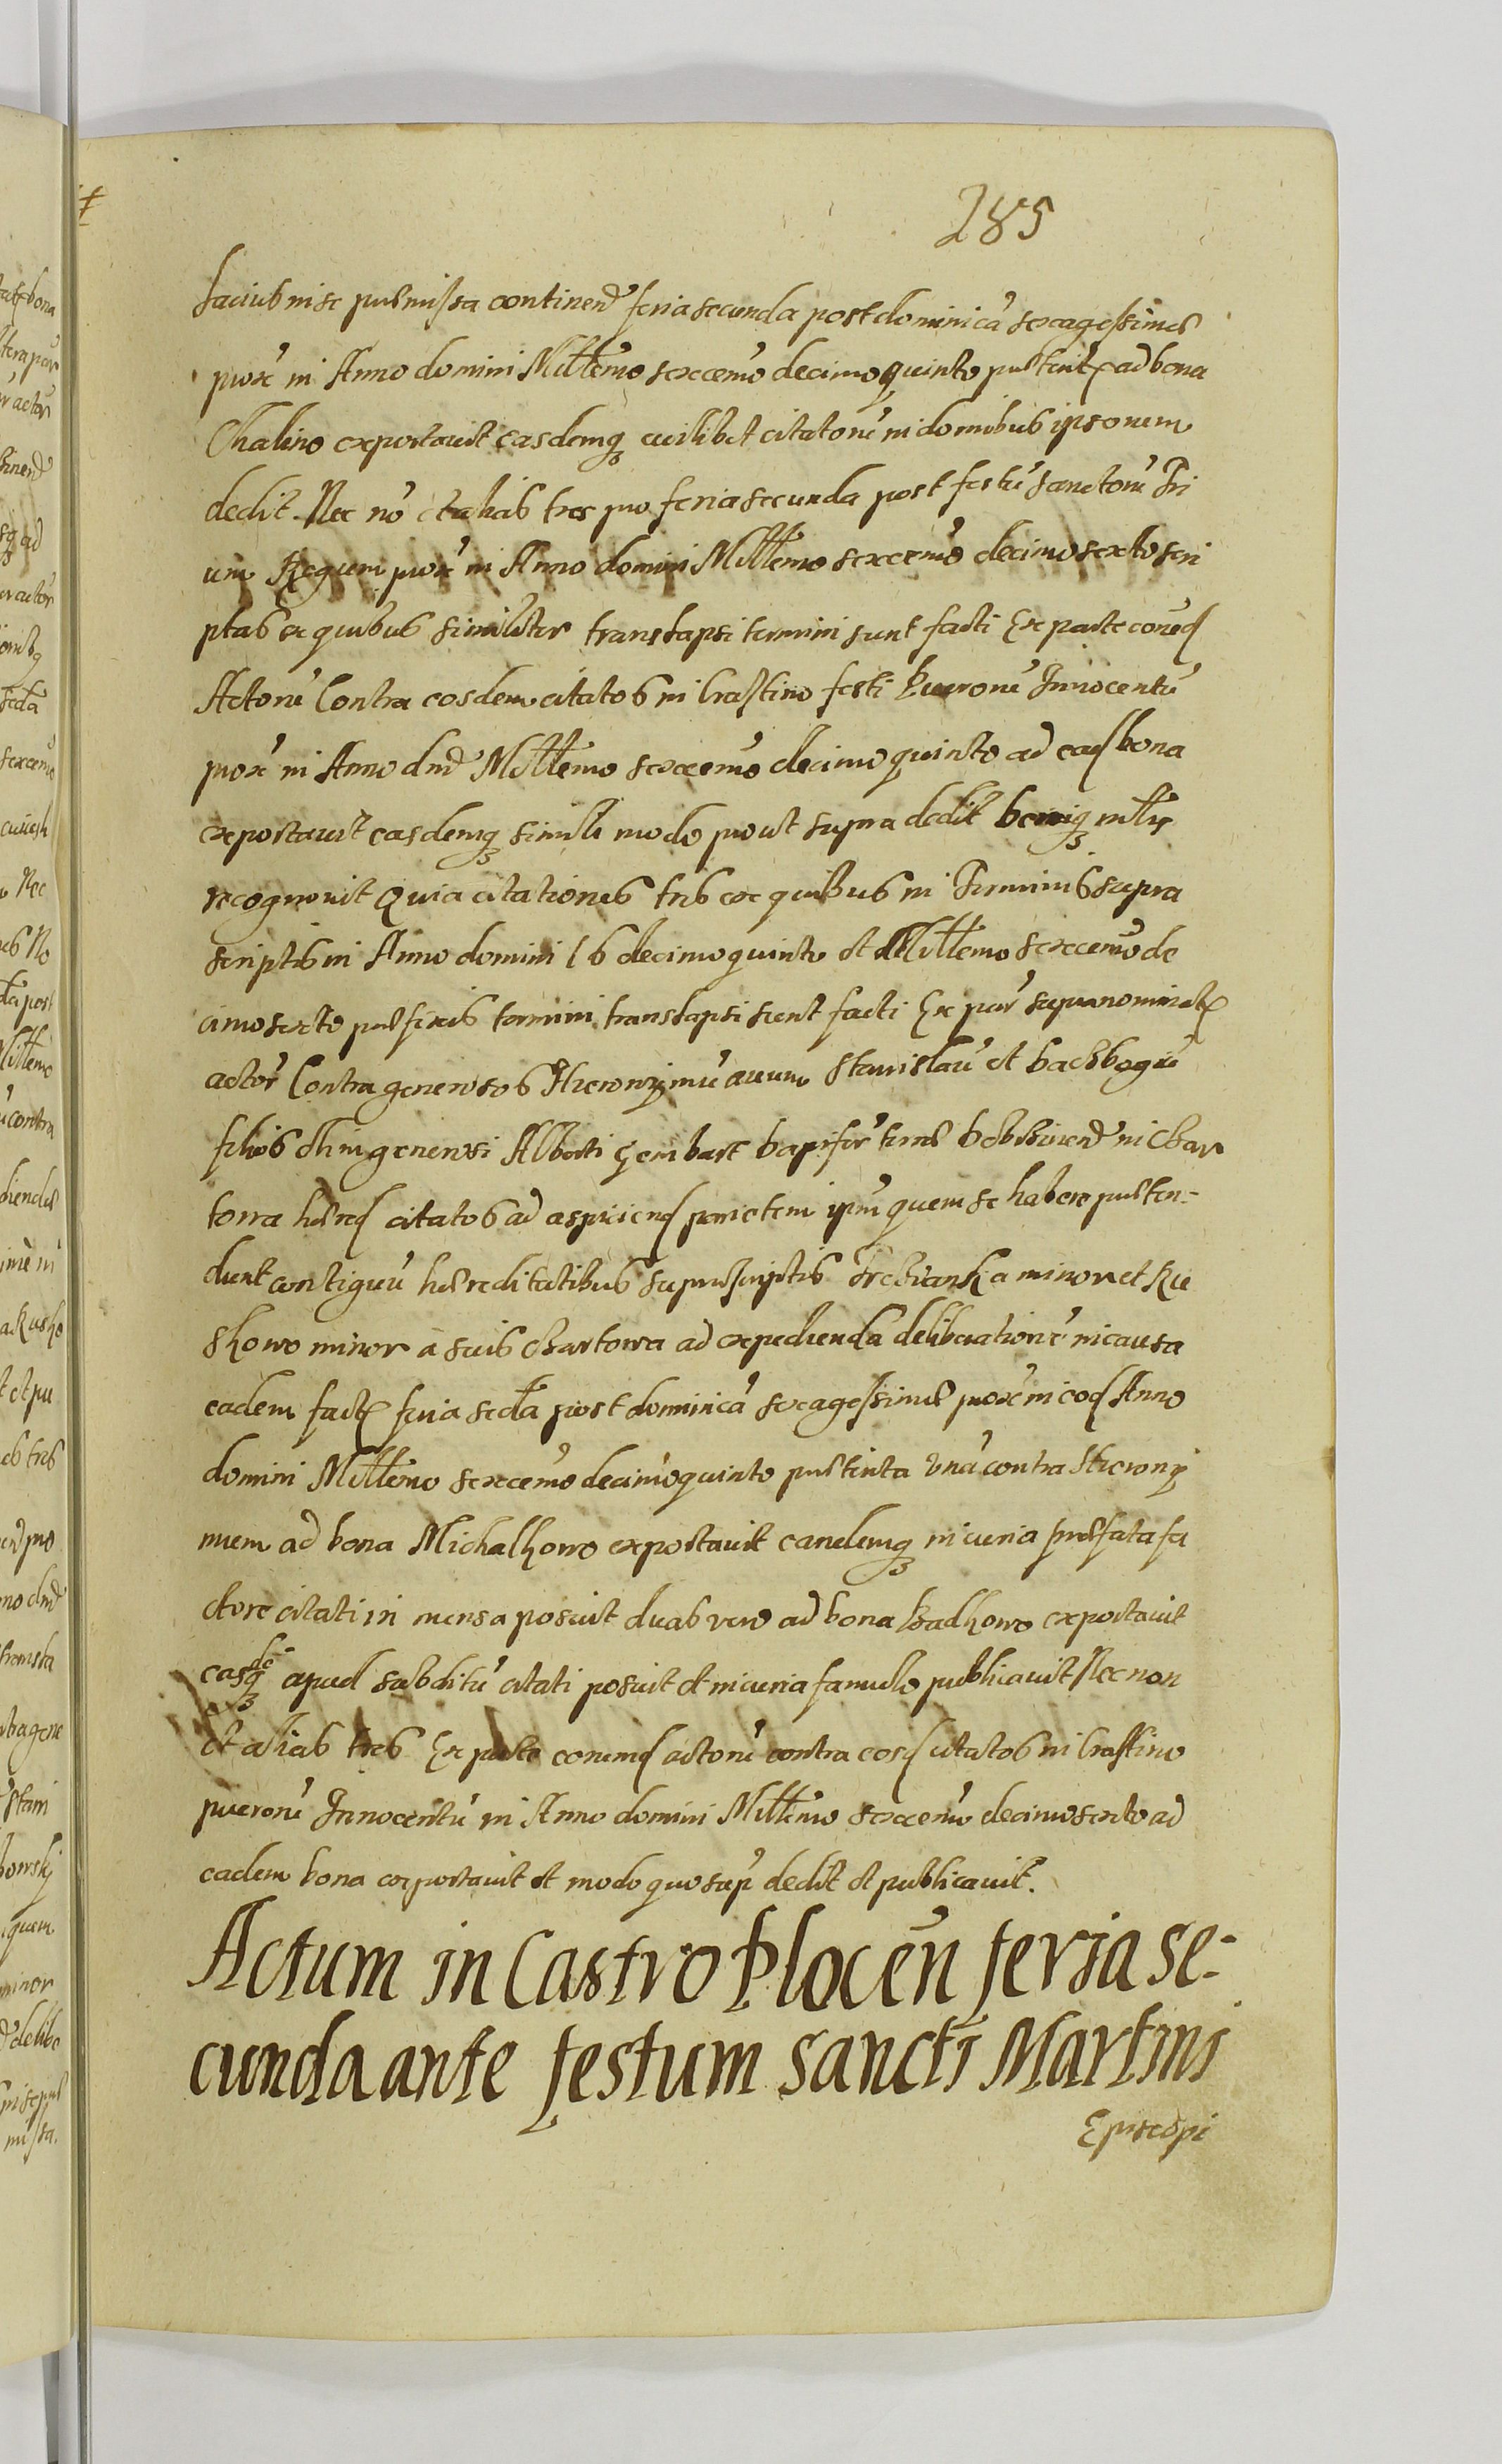 285
faciub in se præmissa continen feria secunda post dominicã sexagessimæ
prox in Anno domini Millemo sexcemo decimo quinto ad bona
Chalino exportavit easdemq cuilibet citatorũ in domibus ipsorum
dedit Nec nõ et alias tres pro feria secunda post festũ sanctorũ Tri
um Regum prox in Anno domini Millemo sexcemo decimo sexto scri
ptas ex quibus similiter translapsi termini sunt facti Ex parte eorũd
Actorũ Contra eosdem citatos in Crastino festi Puerorũ Innocentũ
prox in Anno dni Millemo sexcemo decimo quinto ad ead bona
exportavit easdemq simili modo prout supra dedit
recognovit Quia citationes tres ex quibus in Terminis supra
scriptis in Anno domini 16 decimo quinto et Millemo sexcemo de
cimo sexto præfixis termini translapsi sunt facti Ex par supranominat
actor Contra generosos Hieronymũ avum Stanislaũ et
filios olim generosi Alberti in Char
towa hæred citatos ad aspiciend parietem ipm quem se habere præten-
dunt contiguũ hæreditatibus suprascriptis Trebianska minor et Ru
skowo minor a suis Chartowa ad expedienda deliberationẽ in causa
eadem fact feria scda post dominicã sexagessimæ prox in eod Anno
domini Millemo sexcemo decimo quinto unã contra Hierony
mum ad bona Michalkowo exportavit eandemq in curia præfata fa
ctore citati in mensa posuit duas vero ad bona exportavit
easdeq apud subditũ citati posuit et in curia famulo publicavit Nec non
et alias tres Ex parte eorund actorũ contra eosd citatos in Crastino
puerorũ Innocentũ in Anno domini Millemo sexcemo decimo sexto ad
eadem bona exportavit et modo quo sup dedit et publicavit.
Actum in Castro Plocen feria se-
cunda ante festum Sancti Martini
Episcopi